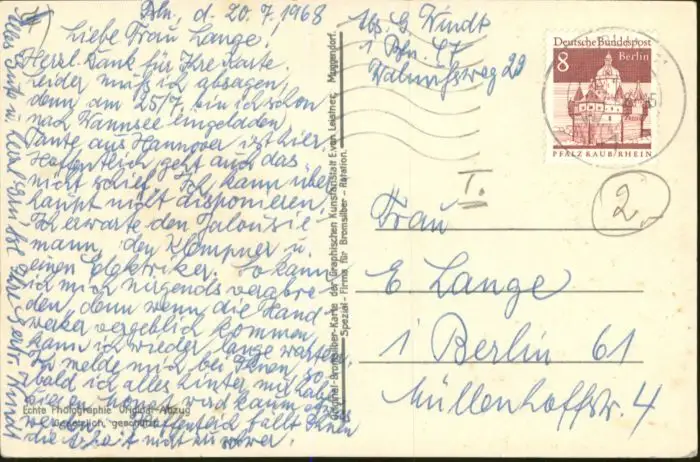 Bln, d. 20.7.1968
Liebe Frau Lange!
Herzl. Dank für Ihre Karte.
Leider muß ich absagen,
denn am 25/7. bin ich schon
nach Wannsee eingeladen
Tante aus Hannover ist hier.
Hoffentlich geht auch das
nicht schief. Ich kann über
haupt nicht disponieren,
Ich erwarte den Jalousie-
mann, den Klempner u.
einen Elektriker. So kann
ich mich nirgends verabre-
den, denn wenn die Hand-
werker vergeblich kommen,
kann ich wieder lange warten.
Ich melde mich bei Ihnen, so-
bald ich alles hinter mir habe.
wird kaum
werden. Hoffentlich fällt Ihnen
die Arbeit nicht zu schwer.
Alles Gute u. herzl.
Echte Photographie Original-Abzug
Gesetzlich geschützt
Original-Bromsilber-Karte der Graphischen Kunstanstalt E. von Leistner, Muggendorf.
Spezial-Firma für Bromsilber-Rotation.
Abs. G Windt
1 Bln. 47
29
Deutsche Bundespost
8 Berlin
PFALZ KAUB/RHEIN
I.
2,-
Frau
E Lange
1 Berlin 61
Müllenhoffstr. 4